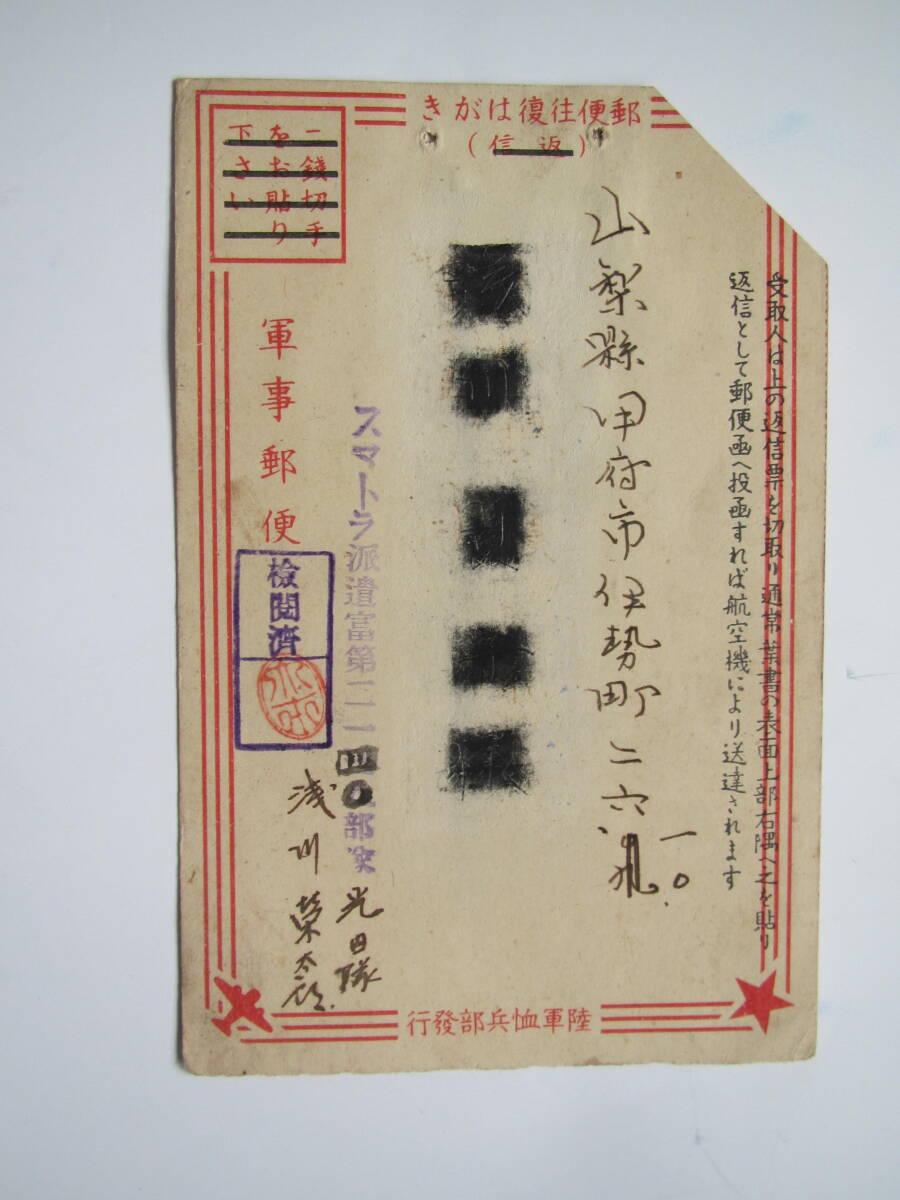 郵便往復はがき
(返信)
一錢切手
をお貼り
下さい
受取人は上の返信票を切取り通常葉書の表面上部右隅へ之を貼り
返信として郵便函へ投函すれば航空機により送達されます
山梨縣甲府市伊勢町二六
一〇
スマトラ派遣富第二一四〇部隊
光田隊
浅川榮太郎
軍事郵便
檢閲濟
陸軍恤兵部發行